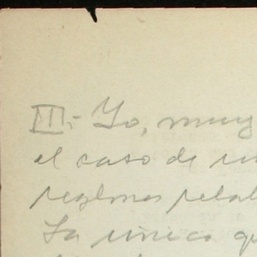 III.- Yo, muy
el caso de un
reglones
La único q